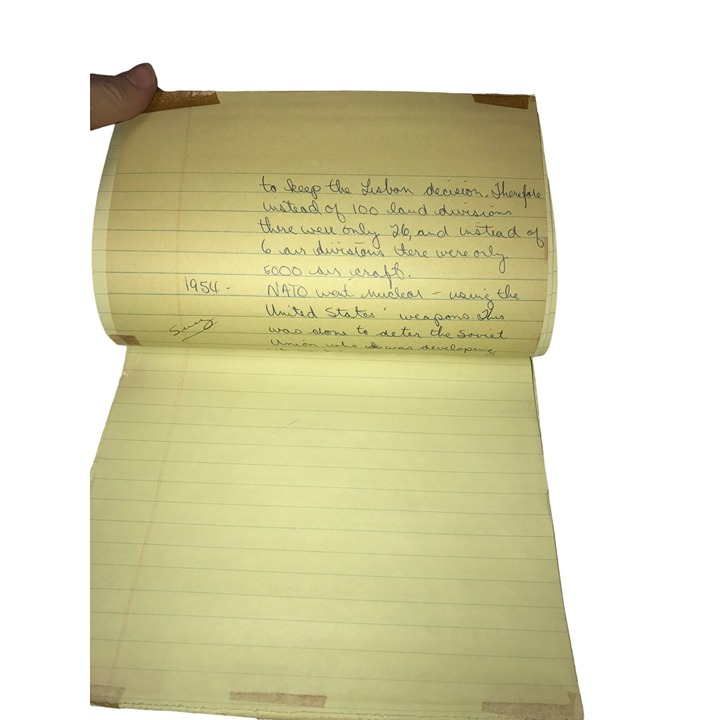 to keep the Lisbon decision. Therefore
instead of 100 land divisions
there were only 26, and instead of
6 air divisions there were only
5000 air craft.
1954 - NATO went nuclear - using the
United States' weapons. This
was done to deter the Soviet
Union who was developing